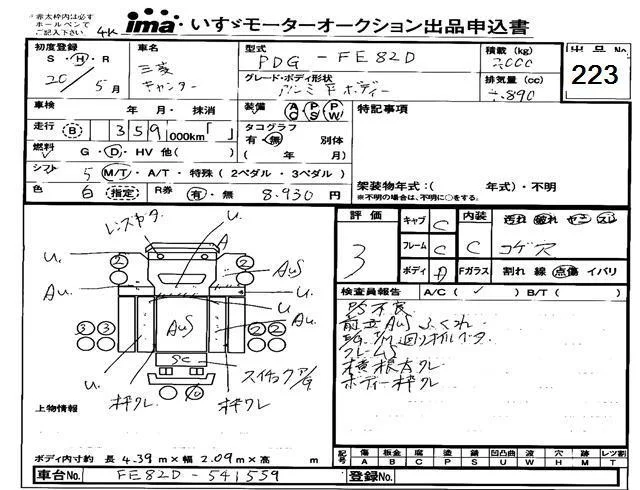 ※赤太枠内は必ず
ボールペンで
ご記入下さい
4K
ima いすゞモーターオークション出品申込書
初度登録
S・H・R
20年5月
車名
三菱
キャンター
型式
PDG-FE82D
グレード・ボディ形状
アルミFボディー
積載(kg)
2,000
排気量(cc)
4.890
出品No
223
車検 年 月・抹消
装備 AC PS PW
特記事項
走行 B 359,000km「 」
タコグラフ
有・無 別体
( 年 月)
燃料 G・D・HV 他( )
シフト 5 M/T・A/T・特殊(2ペダル・3ペダル)
色 白 指定 R券 有・無 8.930円
架装物年式:( 年式)・不明
※不明の場合は、不明に○をする。
評価 3
キャブ C
フレーム C
ボディ A
内装 C
汚れ 破れ ヤニ スレ
コゲ穴
Fガラス 割れ 線 点傷 イバリ
検査員報告 A/C( ✓ ) B/T( )
PS不良
前立AuSふくれ
フレームS
横根太クレ
ボディー枠クレ
レンズヤケ
U. A
U. 2 2 AuS
Au. U.
U
3 3 AuS Au. 2 2
U. SC
スイチョクP/G
枠クレ 枠クレ
10
上物情報
ボディ内寸約 長 4.39m×幅 2.09m×高 m
記号 傷A 板金B 腐C 塗P 錆S 凹凸曲U 波W 穴H 跡M レツ割T
車台No. FE82D-541559 登録No.